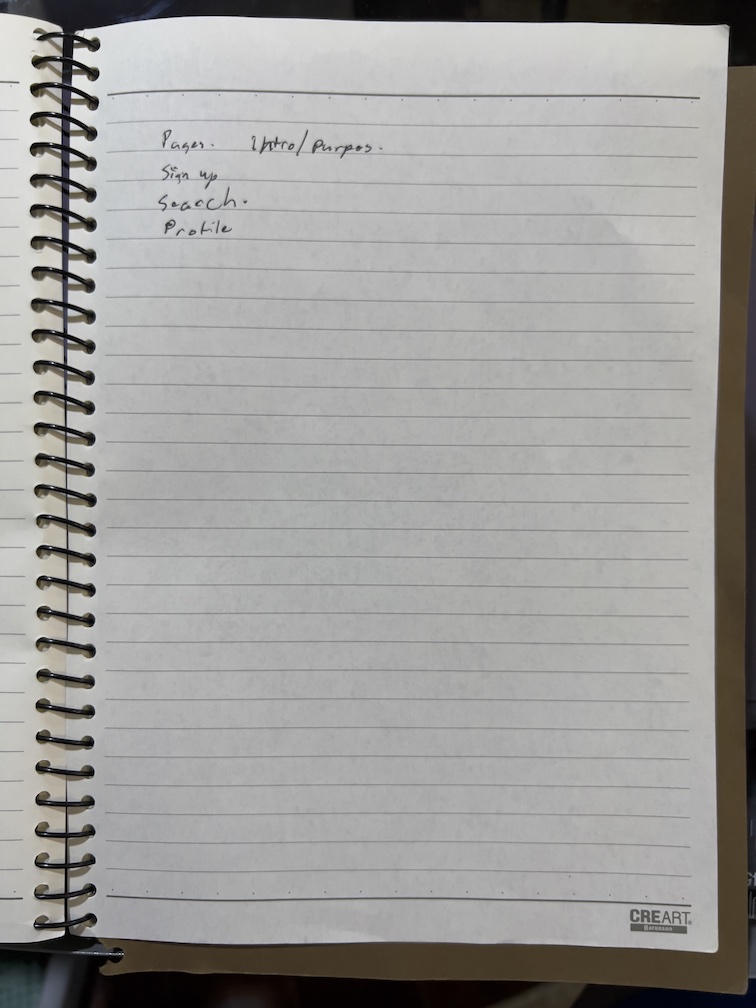 Pages. Intro/purpos.
Sign up
Search.
Profile
CREART